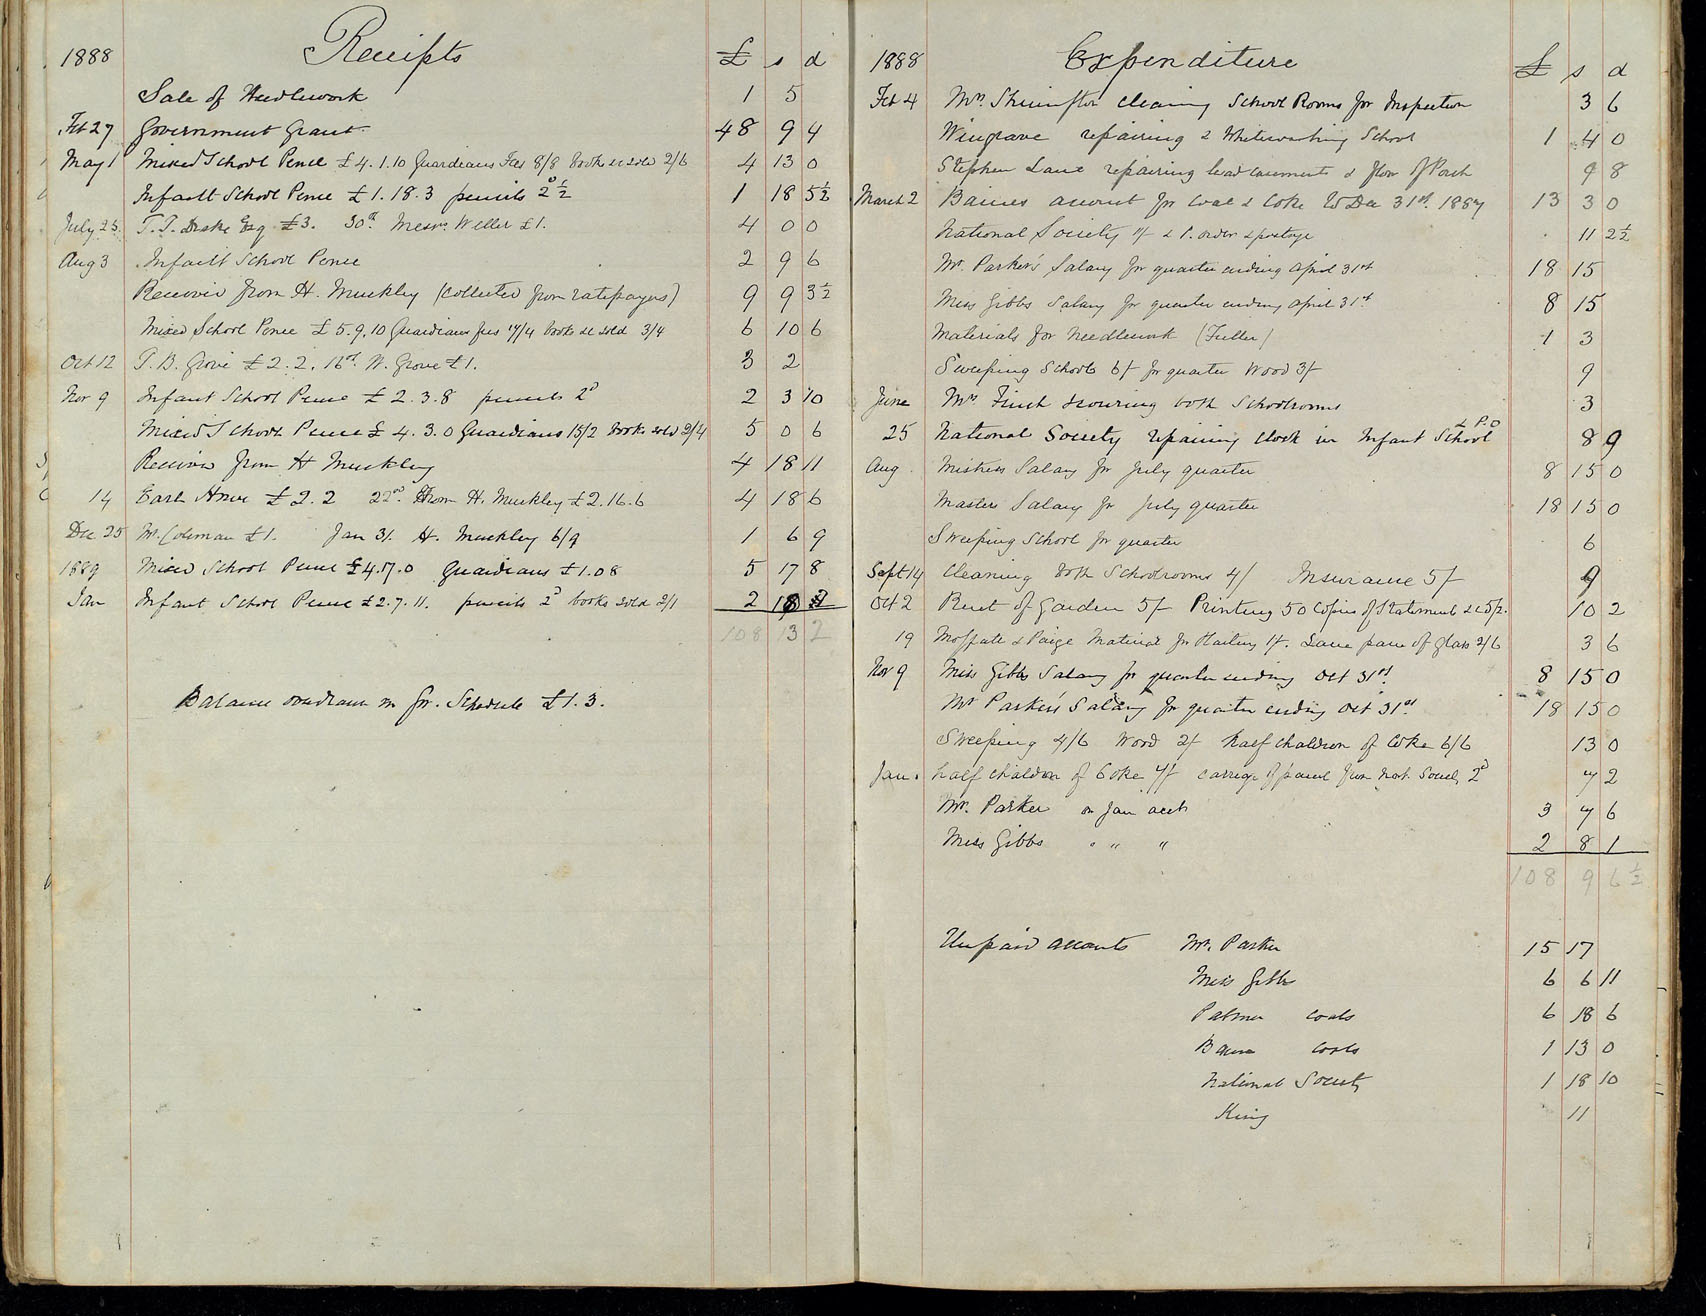 1888 Receipts £ s d
Sale of Needlework 1 5
Feb 27 Government Grant 48 9 4
May 1 Mixed School Pence £4.1.10 Guardians Fees 8/8 books &c sold 2/6 4 13 0
Infant School Pence £1.18.3 pencils 2½d 1 18 5½
July 25 T.T. Drake Esq £3. 30th Messrs Weller £1. 4 0 0
Aug 3 Infant School Pence 2 9 6
Receiver from H. Muckley (collected from ratepayers) 9 9 3½
Mixed School Pence £5.9.10 Guardians fees 17/4 books &c sold 3/4 6 10 6
Oct 12 T.B. Grove £2.2. 16th W. Grove £1. 3 2
Nov 9 Infant School Pence £2.3.8 pencils 2d 2 3 10
Mixed School Pence £4.3.0 Guardians 15/2 books sold 2/4 5 0 6
Receiver from H Muckley 4 18 11
14 Earl Howe £2.2 22nd From H. Muckley £2.16.6 4 18 6
Dec 25 Mr. Coleman £1. Jan 31. H. Muckley 6/9 1 6 9
1889 Mixed School Pence £4.17.0 Guardians £1.0.8 5 17 8
Jan Infant School Pence £2.7.11. pencils 2d books sold 2/1 2
108 13 2
Balance overdrawn on for. Schedule £1.3.
1888 Expenditure £ s d
Feb 4 Mrs. Shrimpton cleaning School Rooms for Inspection 3 6
Wingrave repairing & Whitewashing School 1 4 0
Stephen Lane repairing lead casements & floor of Porch 9 8
March 2 Baines account for Coal & Coke to Dec 31st. 1887 13 3 0
National Society & P. order & postage 11 2½
Mr. Parker's Salary for quarter ending April 31st 18 15
Miss Gibbs Salary for quarter ending April 31st 8 15
Materials for Needlework (Fuller) 1 3
Sweeping Schools 6/ for quarter Wood 3/ 9
June Mrs. Finch scouring both Schoolrooms 3
& P.O
25 National Society repairing clock in Infant School 8 9
Aug Mistress Salary for July quarter 8 15 0
Masters Salary for July quarter 18 15 0
Sweeping School for quarter 6
Sept 14 Cleaning both Schoolrooms 4/ Insurance 5/ 9
Oct 2 Rent of Garden 5/ Printing 50 Copies of Statement &c 5/2. 10 2
19 Moffatt & Paige Material for 1/. Lane pane of glass 2/6 3 6
Nov 9 Miss Gibbs Salary for quarter ending Oct 31st. 8 15 0
Mr Parker's Salary for quarter ending Oct 31st. 18 15 0
Sweeping 4/6 Wood 2/ half chaldron of Coke 6/6 13 0
Jan. half chaldron of Coke 7/ carriage of parcel from Nat. Society 2d 7 2
Mr. Parker on Jan acct 3 7 6
Miss Gibbs " " " 2 8 1
108 9 6½
Unpaid accounts Mr. Parker 15 17
Miss Gibbs 6 6 11
Palmer coals 6 18 6
Baines coals 1 13 0
National Society 1 18 10
King 11